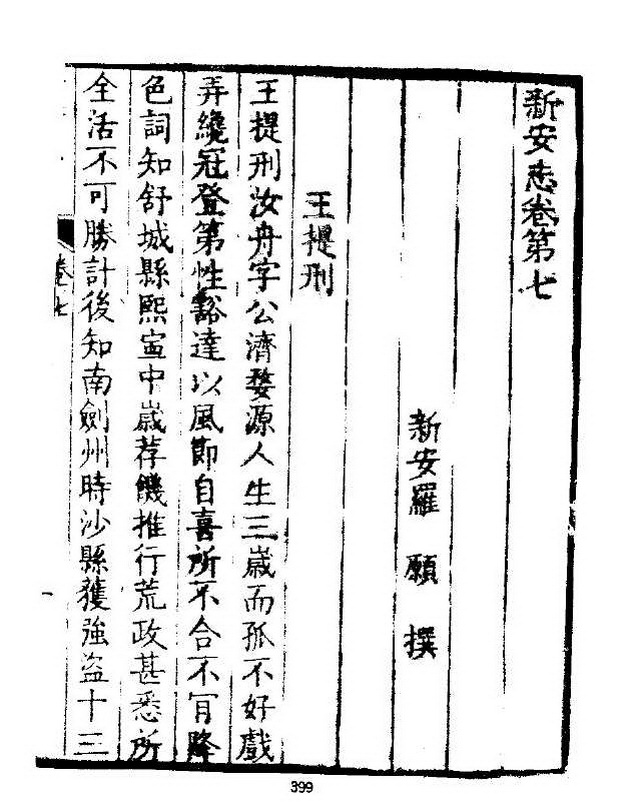 新安志卷第七
新安羅願撰
王提刑
王提刑汝舟字公濟婺源人生三嵗而孤不好戲
弄纔冠登第性豁達以風節自喜所不合不肎降
色詞知舒城縣熙寧中嵗荐饑推行荒政甚悉所
全活不可勝計後知南劍州時沙縣獲強盗十三
卷七
一
399